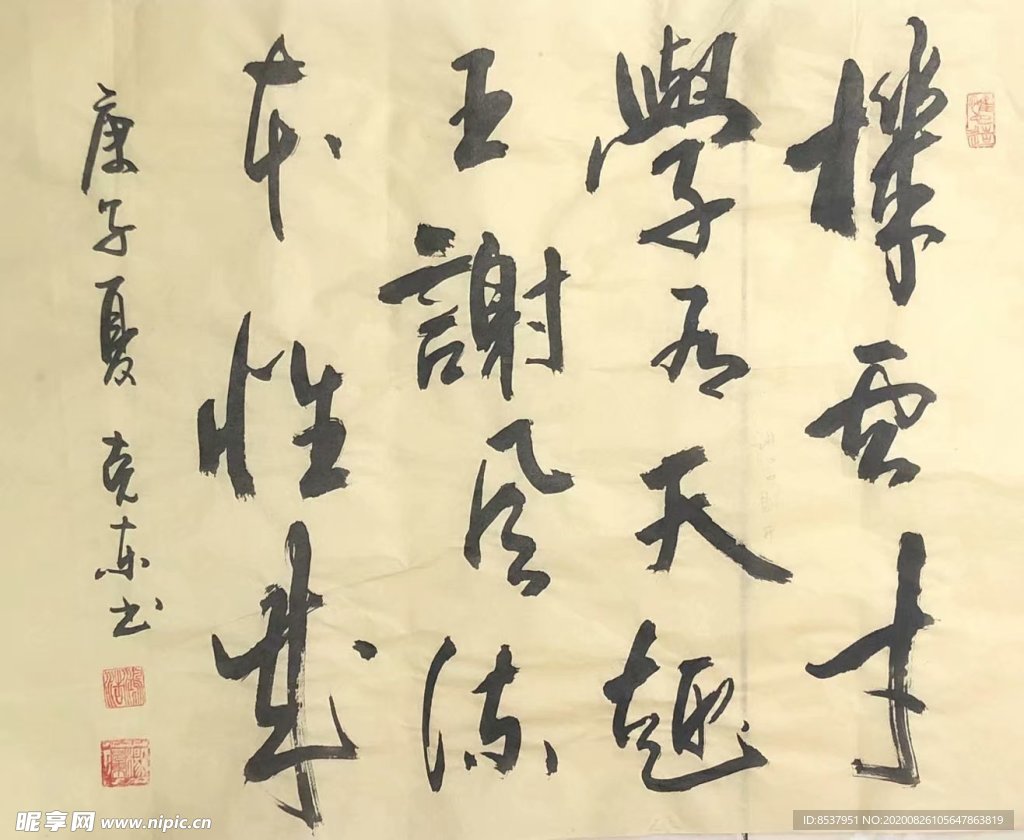 機雲才
學有天趣
王謝風流
本性成
庚子夏 克东书
昵享网 www.nipic.cn
ID:8537951 NO:20200826105647863819